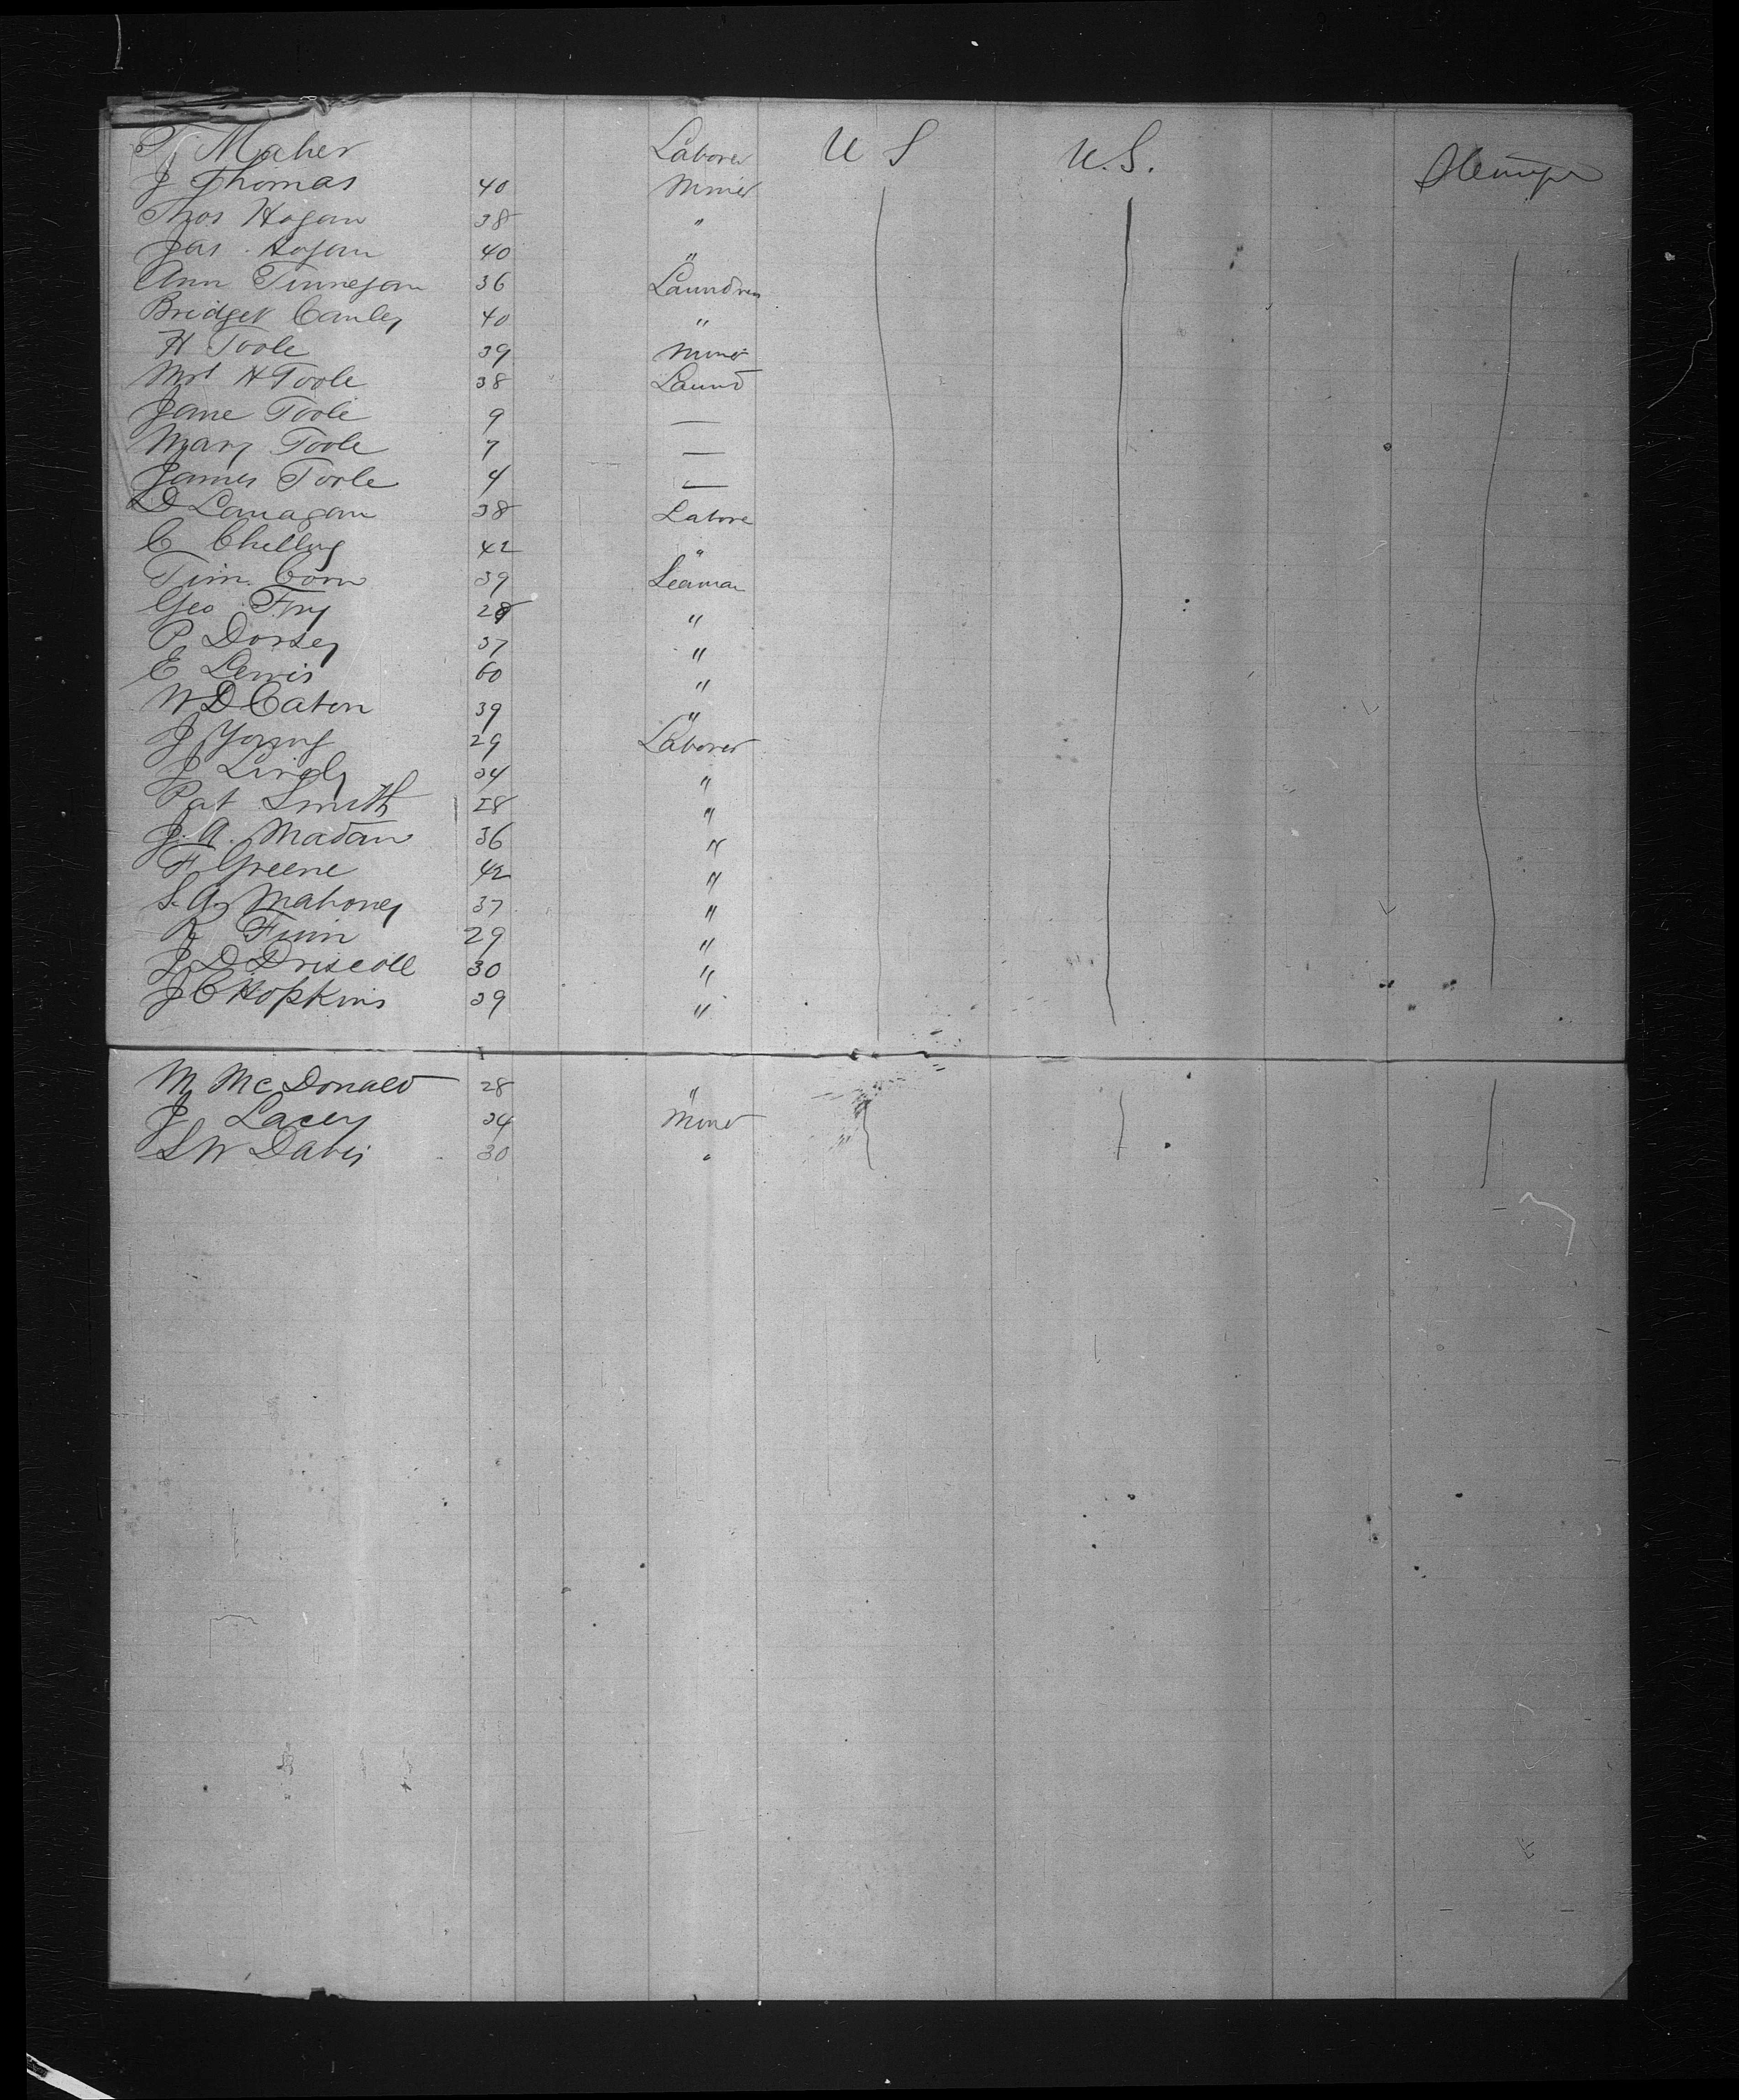 T Maher Laborer U S U.S. Steerage
J Thomas 40 Miner
Thos Hogan 38 "
Jas. Hogan 40 "
Ann Finnegan 36 Laundress
Bridget Canley 40 "
H Toole 39 Miner
Mrs H Toole 38 Laund
Jane Toole 9 —
Mary Toole 7 —
James Toole 4 —
D Lanagan 38 Labore
C 42 "
Tim. Conn 39 Seaman
Geo Fry 28 "
P Dorsey 37 "
E Lewis 60 "
W D Eaton 39 "
J Young 29 Laborer
J 34 "
Pat Smith 28 "
J. A. Madan 36 "
F Greene 42 "
S. A. Mahoney 37 "
R Finn 29 "
J D Driscoll 30 "
J C Hopkins 39 "
M McDonald 28 "
J Lacey 34 Miner
S W Davis 30 "